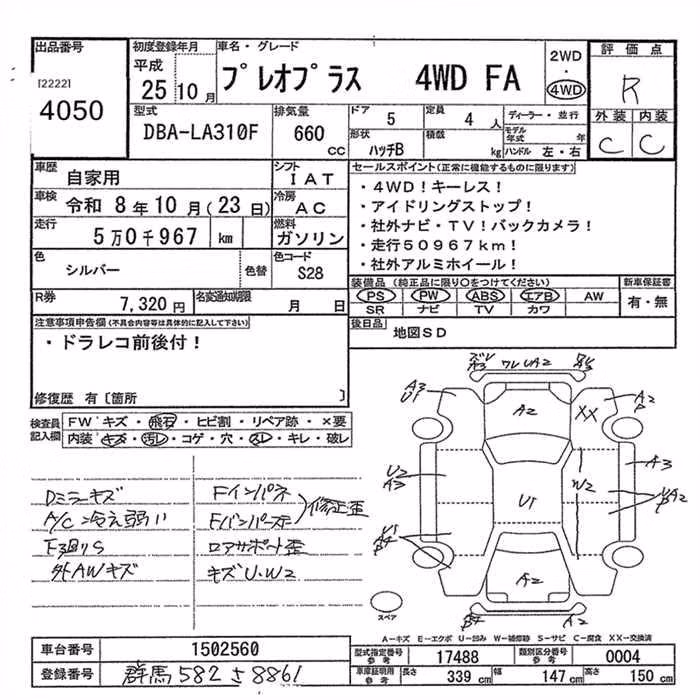 出品番号
[2222]
4050
初度登録年月
平成
25年10月
車名・グレード
プレオプラス 4WD FA
2WD
・
4WD
評価点
R
外装 内装
C C
型式
DBA-LA310F
排気量
660 CC
ドア 5
定員 4 人
形状 ハッチB
積載 kg
ディーラー・並行
モデル年式 年
ハンドル 左・右
車歴 自家用
シフト IAT
車検 令和 8年10月(23日)
冷房 AC
走行 5万0千967 km
燃料 ガソリン
色 シルバー
色替
色コード S28
R券 7,320円
名変通知期限 月 日
セールスポイント(正常に機能するものに限ります)
・4WD!キーレス!
・アイドリングストップ!
・社外ナビ・TV!バックカメラ!
・走行50967km!
・社外アルミホイール!
装備品(純正品に限り○をつけてください)
PS PW ABS エアB AW
SR ナビ TV カワ
新車保証書
有・無
後日品 地図SD
注意事項申告欄(不具合内容等は具体的に記入して下さい)
・ドラレコ前後付!
修復歴 有[箇所 ]
検査員記入欄
FW キズ・飛石・ヒビ割・リペア跡・×要
内装・キズ・汚レ・コゲ・穴・スレ・キレ・破レ
Dミラーキズ
A/C 冷え弱い
F廻りS
外AWキズ
Fインパネ
Fバンパーステー
修正歪
ロアサポート歪
キズU.W2
A3
U1
ワレUA2
A2
XX
A2
P
U2
A3
A3
W2
UA2
P
U1
A2
A2
スペア
A-キズ E-エクボ U-凹み W-補修跡 S-サビ C-腐食 XX-交換済
車台番号 1502560
登録番号 群馬 582 さ 8861
型式指定番号 参考 17488
類別区分番号 参考 0004
車庫証明用 参考 長さ 339 cm 幅 147 cm 高さ 150 cm